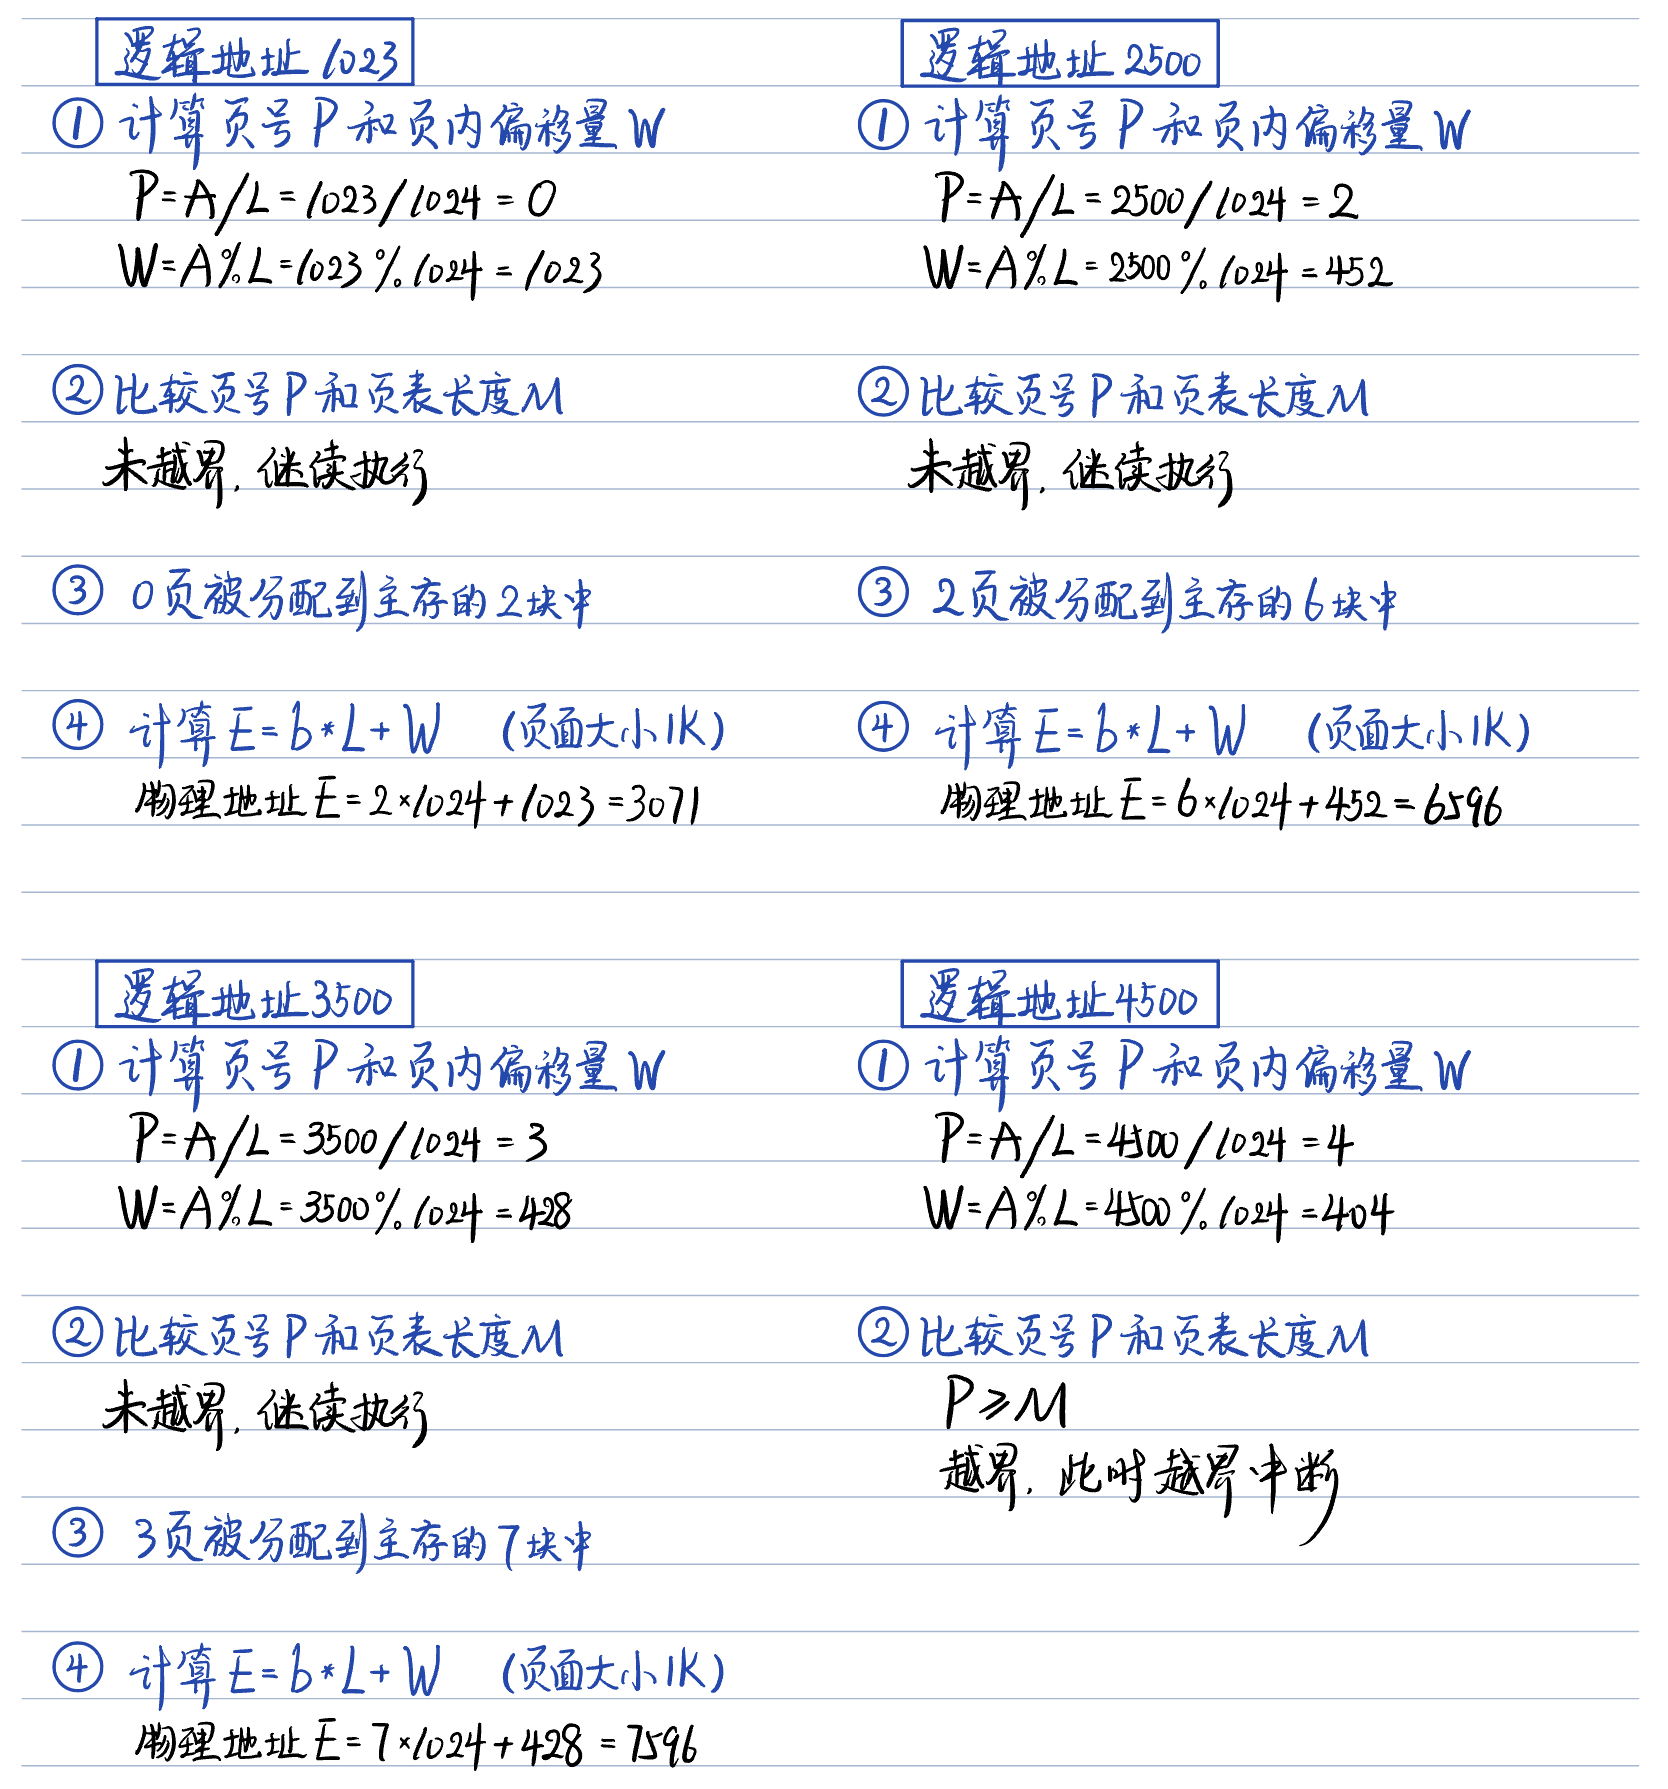 逻辑地址 1023
① 计算页号 P 和页内偏移量 W
P=A/L=1023/1024=0
W=A%L=1023%1024=1023
② 比较页号 P 和页表长度 M
未越界,继续执行
③ 0页被分配到主存的2块中
④ 计算 E=b*L+W (页面大小1K)
物理地址 E=2×1024+1023=3071
逻辑地址 2500
① 计算页号 P 和页内偏移量 W
P=A/L=2500/1024=2
W=A%L=2500%1024=452
② 比较页号 P 和页表长度 M
未越界,继续执行
③ 2页被分配到主存的6块中
④ 计算 E=b*L+W (页面大小1K)
物理地址 E=6×1024+452=6596
逻辑地址 3500
① 计算页号 P 和页内偏移量 W
P=A/L=3500/1024=3
W=A%L=3500%1024=428
② 比较页号 P 和页表长度 M
未越界,继续执行
③ 3页被分配到主存的7块中
④ 计算 E=b*L+W (页面大小1K)
物理地址 E=7×1024+428=7596
逻辑地址 4500
① 计算页号 P 和页内偏移量 W
P=A/L=4500/1024=4
W=A%L=4500%1024=404
② 比较页号 P 和页表长度 M
P≥M
越界,此时越界中断